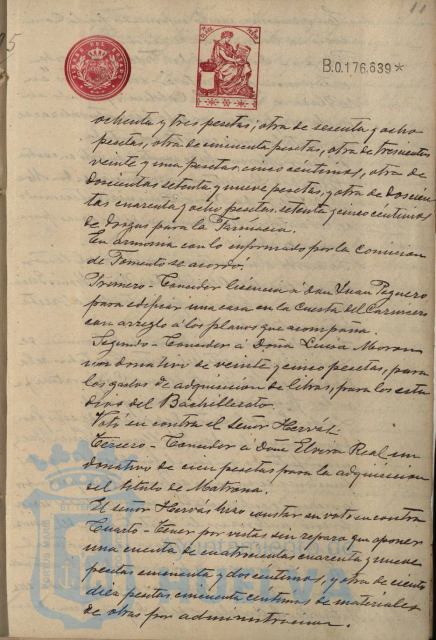 11
B.0.176.639*
ochenta y tres pesetas; otra de sesenta y ocho
pesetas, otra de cincuenta pesetas, otra de trescientas
veinte y una pesetas, cinco céntimos, otra de
doscientas setenta y nueve pesetas, y otra de doscien-
tas cuarenta y ocho pesetas, setenta y cinco céntimos
de drogas para la Farmacia.
En armonia con lo informado por la Comision
de Fomento se acordó.
Primero - Conceder licencia á Don Juan
para edificar una casa en la Cuesta del Carnicero
con arreglo á los planos que acompaña.
Segundo - Conceder á Doña Luisa Moran
un donativo de veinte y cinco pesetas, para
los gastos de adquisicion de libros, para los estu
dios del Bachillerato.
Votó en contra el señor Hervás.
Tercero - Conceder á Doña Elvira Real un
donativo de cien pesetas para la adquisicion
del titulo de Matrona.
El señor Hervás hizo constar su voto en contra
Cuarto - Tener por vistas sin reparo que oponer
una cuenta de cuatrocientas cuarenta y nueve
pesetas cincuenta y dos centimos, y otra de ciento
diez pesetas cincuenta centimos de materiales
de obras por administracion.